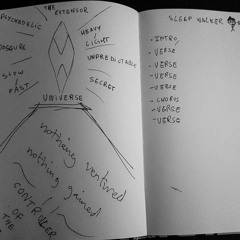 THE EXTENSOR
PSYCHEDELIC
HEAVY/
LIGHT
OBSCURE
UNPREDICTABLE
SLOW
FAST
SECRET
UNIVERSE
nothing ventured
nothing gained
CONTROLLER
OF
THE
SLEEP WALKER
- INTRO/
- VERSE
- VERSE
- VERSE
- VERSE
- CHORUS
- VERSE
- VERSE